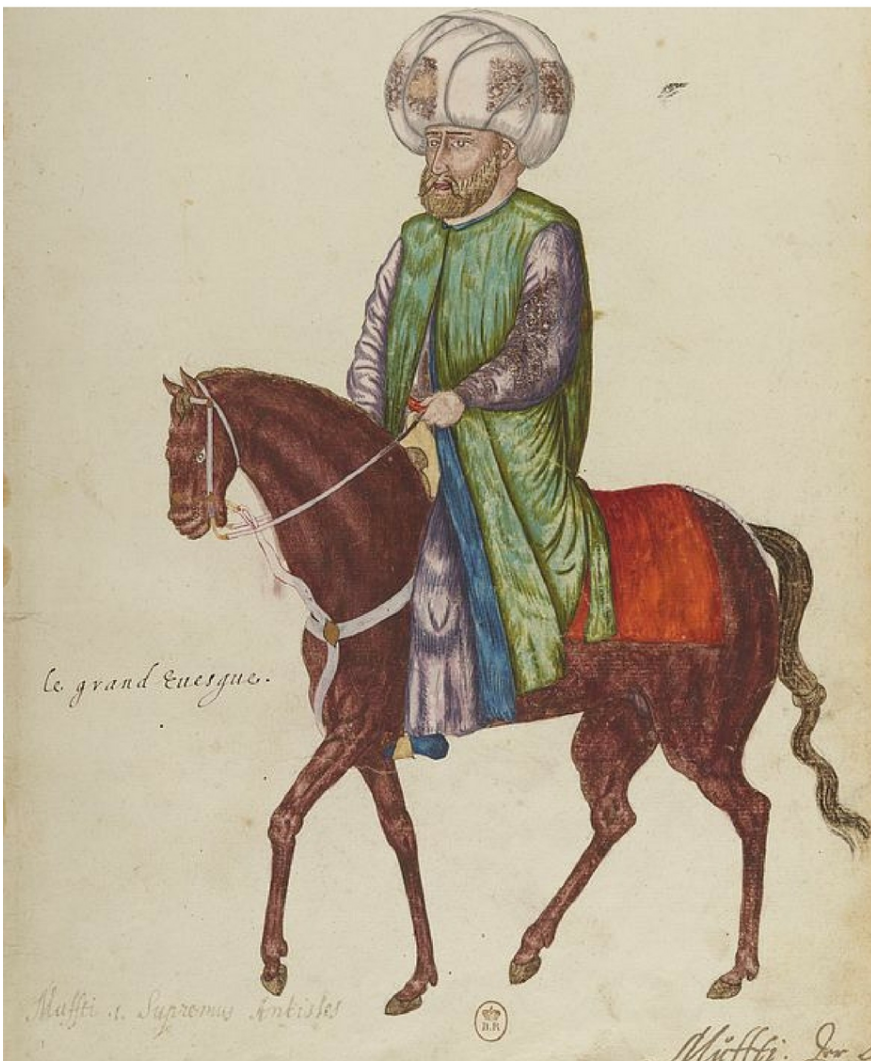 le grand euesque.
Muffti .i. Supremus Antistes
B.R
Müffti. Der